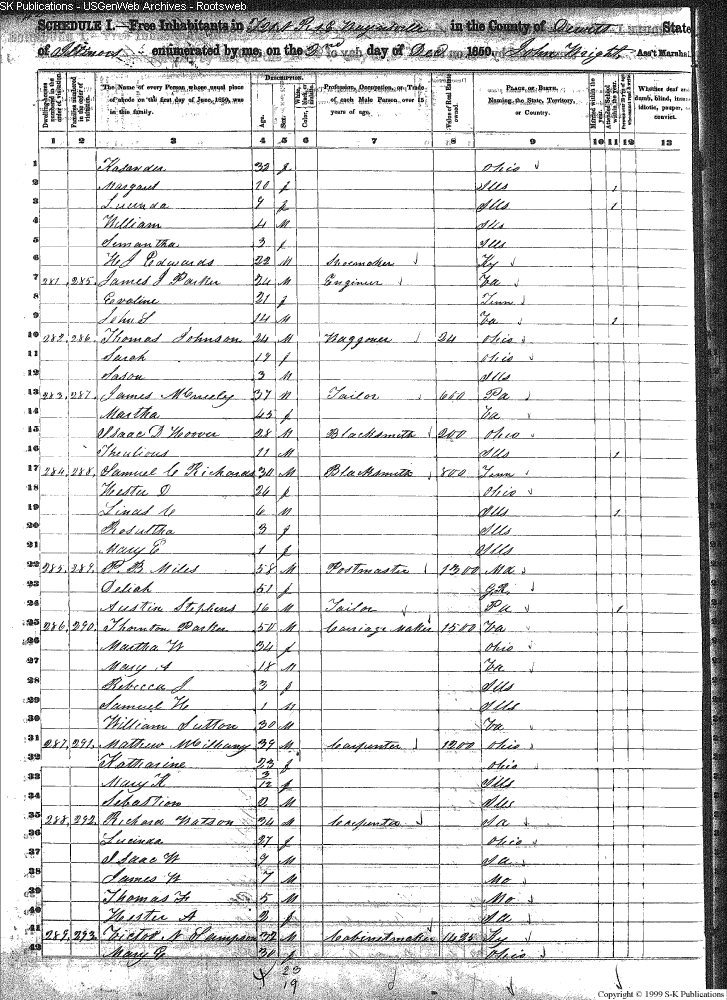 SK Publications - USGenWeb Archives - Rootsweb
SCHEDULE I.—Free Inhabitants in in the County of Dewitt State
of Illinois enumerated by me, on the 2nd day of Dec 1850. John Wright Ass't Marshal
Dwelling-houses numbered in the order of visitation. Families numbered in the order of visitation. The Name of every Person whose usual place of abode on the first day of June, 1850, was in this family. Description. Age. Sex. White, Color, black, or mulatto. Profession, Occupation, or Trade of each Male Person over 15 years of age. Value of Real Estate owned. Place of Birth. Naming the State, Territory, or Country. Married within the year. Attended School within the year. Whether deaf and dumb, blind, insane, idiotic, pauper, or convict.
1 2 3 4 5 6 7 8 9 10 11 12 13
1 Kasander 32 f Ohio
2 Margaret 10 f Ills 1
3 Lucinda 9 f Ills 1
4 William 4 M Ills
5 Simantha 3 f Ills
6 H J Edwards 22 M Shoemaker Ky
7 281 285 James J Parker 24 M Engineer Va
8 Evoline 21 f Tenn
9 John S 14 M Va 1
10 282 286 Thomas Johnson 24 M Waggoner 24 Ohio
11 Sarah 19 f Ohio
12 Jason 3 M Ills
13 283 287 James 37 M Tailor 660 Pa
14 Martha 45 f Va
15 Isaac D Hoover 28 M Blacksmith 200 Ohio
16 11 M Ills 1
17 284 288 Samuel C Richards 30 M Blacksmith 800 Tenn
18 Hester D 26 f Ohio
19 Linus C 6 M Ills 1
20 Rosultha 3 f Ills
21 Mary E 1 f Ills
22 285 289 P B Miles 58 M Postmaster 1300 Md
23 Deliah 51 f
24 Austin Stephens 16 M Tailor Pa 1
25 286 290 Thornton Parker 50 M Carriage Maker 1500 Va
26 Martha W 34 f Ohio
27 Mary A 18 Va
28 Rebecca J 3 f Ills
29 Samuel H 1 M Ills
30 William Sutton 30 M Va
31 287 291 Mathew 39 M Carpenter 1200 Ohio
32 Katharine 23 f Ohio
33 Mary K 3/12 f Ills
34 Sebastion 2 M Ills
35 288 292 Richard Watson 34 M Carpenter
36 Lucinda 27 f Ohio
37 Isaac W 9 M
38 James W 7 M Mo
39 Thomas F 5 M Mo
40 Hester A 2 f
41 289 293 Victor N Sampson 32 M Cabinetmaker 1425 Ky
42 Mary E 30 f Ohio
23
19
Copyright © 1999 S-K Publications